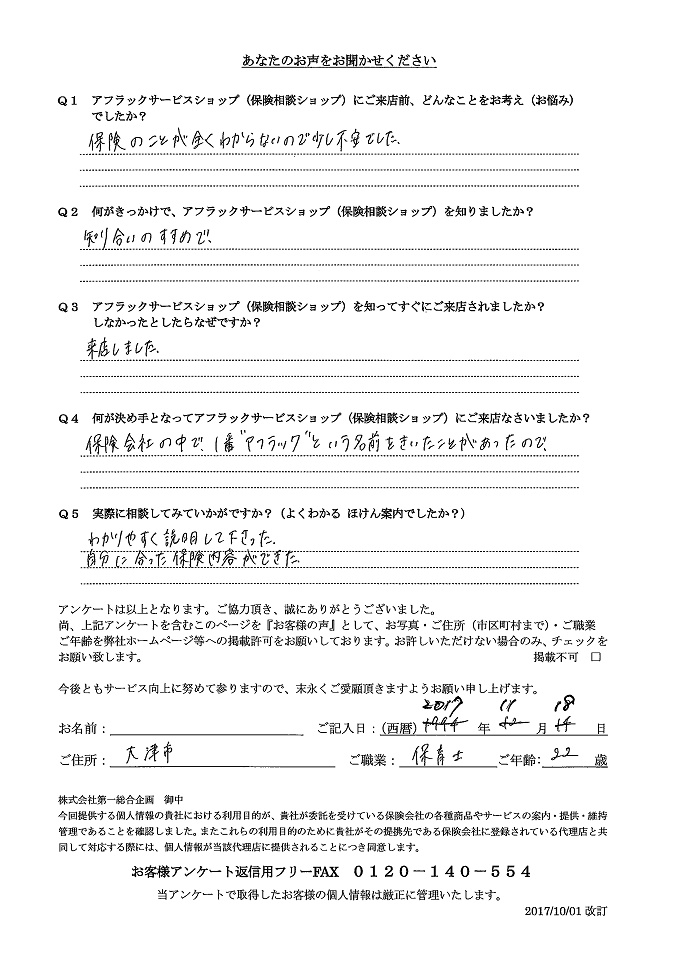 あなたのお声をお聞かせください
Q１ アフラックサービスショップ（保険相談ショップ）にご来店前、どんなことをお考え（お悩み）
でしたか？
保険のことが全くわからないので少し不安でした.
Q２ 何がきっかけで、アフラックサービスショップ（保険相談ショップ）を知りましたか？
知り合いのすすめで、
Q３ アフラックサービスショップ（保険相談ショップ）を知ってすぐにご来店されましたか？
しなかったとしたらなぜですか？
来店しました.
Q４ 何が決め手となってアフラックサービスショップ（保険相談ショップ）にご来店なさいましたか？
保険会社の中で、1番"アフラック"という名前をきいたことがあったので、
Q５ 実際に相談してみていかがですか？（よくわかる ほけん案内でしたか？）
わかりやすく説明して下さった.
自分に合った保険内容ができた.
アンケートは以上となります。ご協力頂き、誠にありがとうございました。
尚、上記アンケートを含むこのページを『お客様の声』として、お写真・ご住所（市区町村まで）・ご職業
ご年齢を弊社ホームページ等への掲載許可をお願いしております。お許しいただけない場合のみ、チェックを
お願い致します。 掲載不可 □
今後ともサービス向上に努めて参りますので、末永くご愛顧頂きますようお願い申し上げます。
2017 11 18
お名前： ご記入日：(西暦) 1994 年 12 月 14 日
ご住所： 大津市 ご職業： 保育士 ご年齢： 22 歳
株式会社第一総合企画 御中
今回提供する個人情報の貴社における利用目的が、貴社が委託を受けている保険会社の各種商品やサービスの案内・提供・維持
管理であることを確認しました。またこれらの利用目的のために貴社がその提携先である保険会社に登録されている代理店と共
同して対応する際には、個人情報が当該代理店に提供されることにつき同意します。
お客様アンケート返信用フリーFAX ０１２０－１４０－５５４
当アンケートで取得したお客様の個人情報は厳正に管理いたします。
2017/10/01 改訂